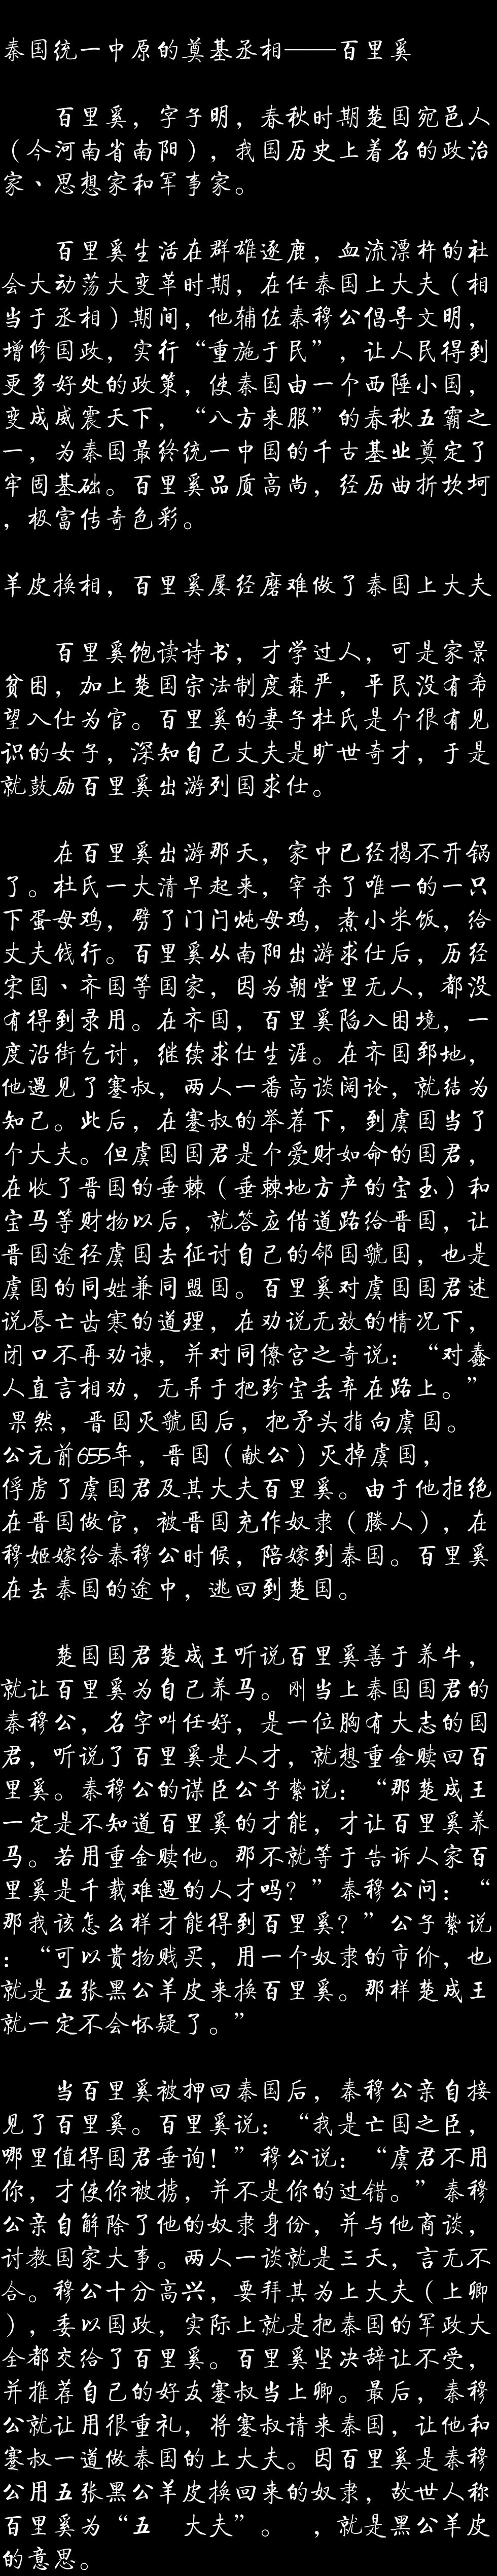 秦国统一中原的奠基丞相——百里奚
百里奚，字子明，春秋时期楚国宛邑人
（今河南省南阳），我国历史上着名的政治
家、思想家和军事家。
百里奚生活在群雄逐鹿，血流漂杵的社
会大动荡大变革时期，在任秦国上大夫（相
当于丞相）期间，他辅佐秦穆公倡导文明，
增修国政，实行“重施于民”，让人民得到
更多好处的政策，使秦国由一个西陲小国，
变成威震天下，“八方来服”的春秋五霸之
一，为秦国最终统一中国的千古基业奠定了
牢固基础。百里奚品质高尚，经历曲折坎坷
，极富传奇色彩。
羊皮换相，百里奚屡经磨难做了秦国上大夫
百里奚饱读诗书，才学过人，可是家景
贫困，加上楚国宗法制度森严，平民没有希
望入仕为官。百里奚的妻子杜氏是个很有见
识的女子，深知自己丈夫是旷世奇才，于是
就鼓励百里奚出游列国求仕。
在百里奚出游那天，家中已经揭不开锅
了。杜氏一大清早起来，宰杀了唯一的一只
下蛋母鸡，劈了门闩炖母鸡，煮小米饭，给
丈夫饯行。百里奚从南阳出游求仕后，历经
宋国、齐国等国家，因为朝堂里无人，都没
有得到录用。在齐国，百里奚陷入困境，一
度沿街乞讨，继续求仕生涯。在齐国郅地，
他遇见了蹇叔，两人一番高谈阔论，就结为
知己。此后，在蹇叔的举荐下，到虞国当了
个大夫。但虞国国君是个爱财如命的国君，
在收了晋国的垂棘（垂棘地方产的宝玉）和
宝马等财物以后，就答应借道路给晋国，让
晋国途径虞国去征讨自己的邻国虢国，也是
虞国的同姓兼同盟国。百里奚对虞国国君述
说唇亡齿寒的道理，在劝说无效的情况下，
闭口不再劝谏，并对同僚宫之奇说：“对蠢
人直言相劝，无异于把珍宝丢弃在路上。”
果然，晋国灭虢国后，把矛头指向虞国。
公元前655年，晋国（献公）灭掉虞国，
俘虏了虞国君及其大夫百里奚。由于他拒绝
在晋国做官，被晋国充作奴隶（媵人），在
穆姬嫁给秦穆公时候，陪嫁到秦国。百里奚
在去秦国的途中，逃回到楚国。
楚国国君楚成王听说百里奚善于养牛，
就让百里奚为自己养马。刚当上秦国国君的
秦穆公，名字叫任好，是一位胸有大志的国
君，听说了百里奚是人才，就想重金赎回百
里奚。秦穆公的谋臣公子絷说：“那楚成王
一定是不知道百里奚的才能，才让百里奚养
马。若用重金赎他。那不就等于告诉人家百
里奚是千载难遇的人才吗？”秦穆公问：“
那我该怎么样才能得到百里奚？”公子絷说
：“可以贵物贱买，用一个奴隶的市价，也
就是五张黑公羊皮来换百里奚。那样楚成王
就一定不会怀疑了。”
当百里奚被押回秦国后，秦穆公亲自接
见了百里奚。百里奚说：“我是亡国之臣，
哪里值得国君垂询！”穆公说：“虞君不用
你，才使你被掳，并不是你的过错。”秦穆
公亲自解除了他的奴隶身份，并与他商谈，
讨教国家大事。两人一谈就是三天，言无不
合。穆公十分高兴，要拜其为上大夫（上卿
），委以国政，实际上就是把秦国的军政大
全都交给了百里奚。百里奚坚决辞让不受，
并推荐自己的好友蹇叔当上卿。最后，秦穆
公就让用很重礼，将蹇叔请来秦国，让他和
蹇叔一道做秦国的上大夫。因百里奚是秦穆
公用五张黑公羊皮换回来的奴隶，故世人称
百里奚为“五　大夫”。　，就是黑公羊皮
的意思。